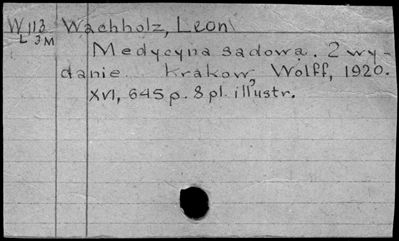 W 113 Wachholz, Leon
L 3M
Medycyna sadowa. 2 wy-
danie. Krakow, Wolff, 1920.
XVI, 645 p. 8 pl. illustr.